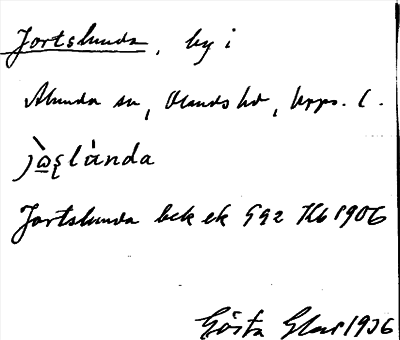 Jortslunda, by i
Alunda sn, Olands hd, Upps. l.
Jortslunda bek ek 992 Hb 1906
Gösta 1936